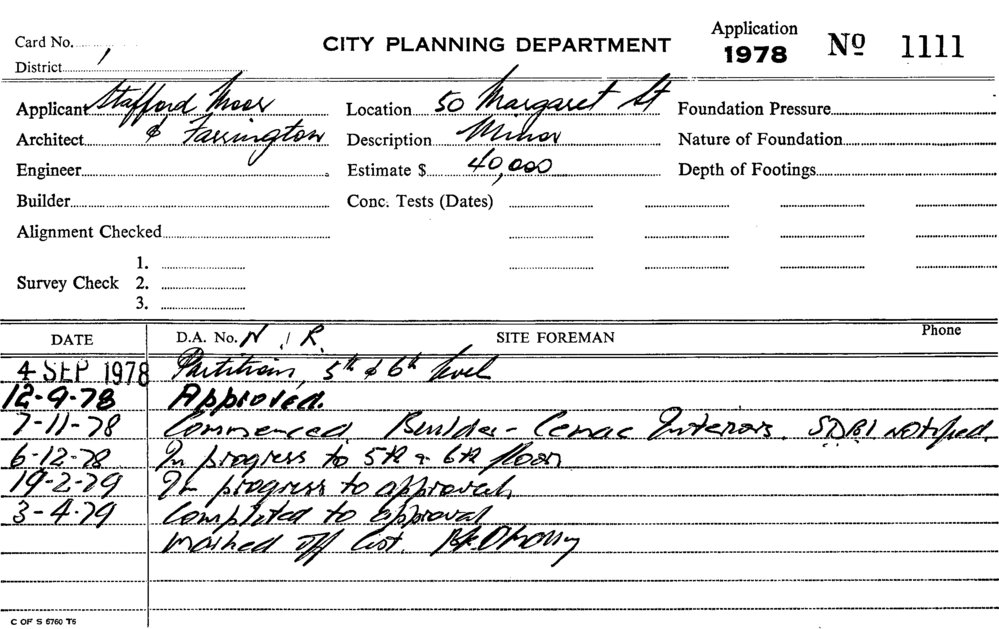 Application
Card No. CITY PLANNING DEPARTMENT 1978 No 1111
District 1
Applicant Stafford Moor Location 50 Margaret St Foundation Pressure
Architect & Farrington Description Minor Nature of Foundation
Engineer Estimate $ 40,000 Depth of Footings
Builder Conc. Tests (Dates)
Alignment Checked
1.
Survey Check 2.
3.
DATE D.A. No. N/R. SITE FOREMAN Phone
4 SEP 1978 Partitions, 5th & 6th level
12-9-78 Approved.
7-11-78 Commenced. Builder - Cemac Interiors. SDBI notified.
6-12-78 In progress to 5th & 6th floor
19-2-79 In progress to approval
3-4-79 Completed to approval
Marked off List.
C OF S 5760 T5